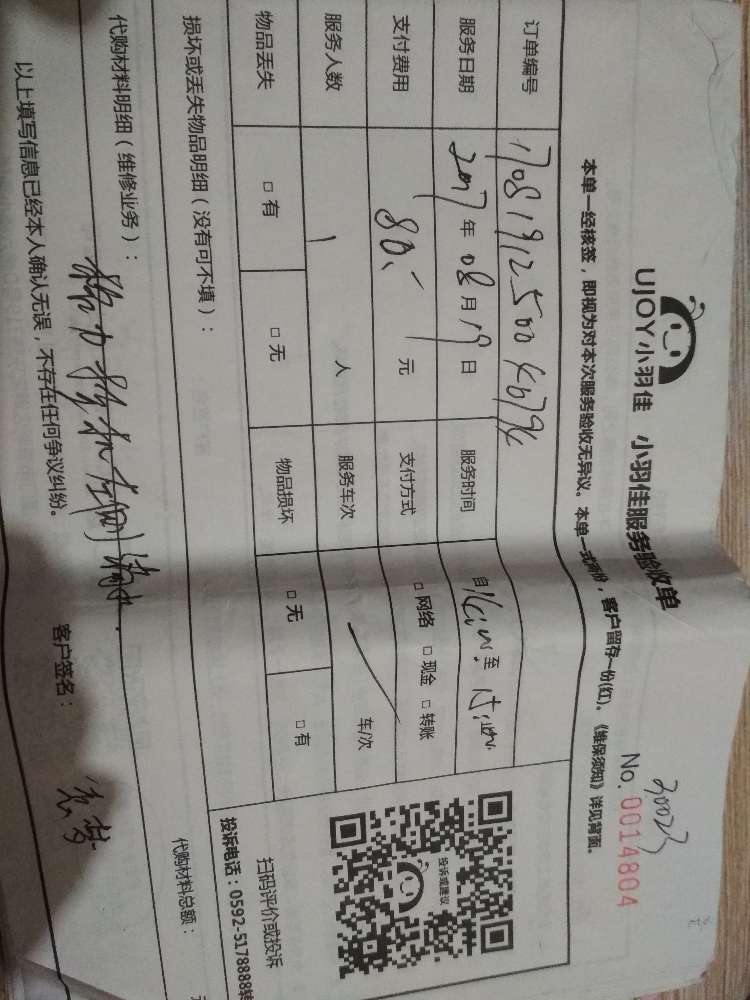 UJOY小羽佳 小羽佳服务验收单
30023
No. 0014804
本单一经核签，即视为对本次服务验收无异议。本单一式两份，客户留存一份(红)。《维保须知》详见背面。
订单编号
服务日期 2017 年 08 月 19 日 服务时间 自 至
支付费用 80.- 元 支付方式 □ 网络 □ 现金 □ 转账
服务人数 1 人 服务车次 车/次
物品丢失 □ 有 □ 无 物品损坏 □ 无 □ 有
投诉或建议
扫码评价或投诉
投诉电话：0592-5178888转
损坏或丢失物品明细（没有可不填）：
代购材料明细（维修业务）：
代购材料总额：
以上填写信息已经本人确认无误，不存在任何争议纠纷。 客户签名：